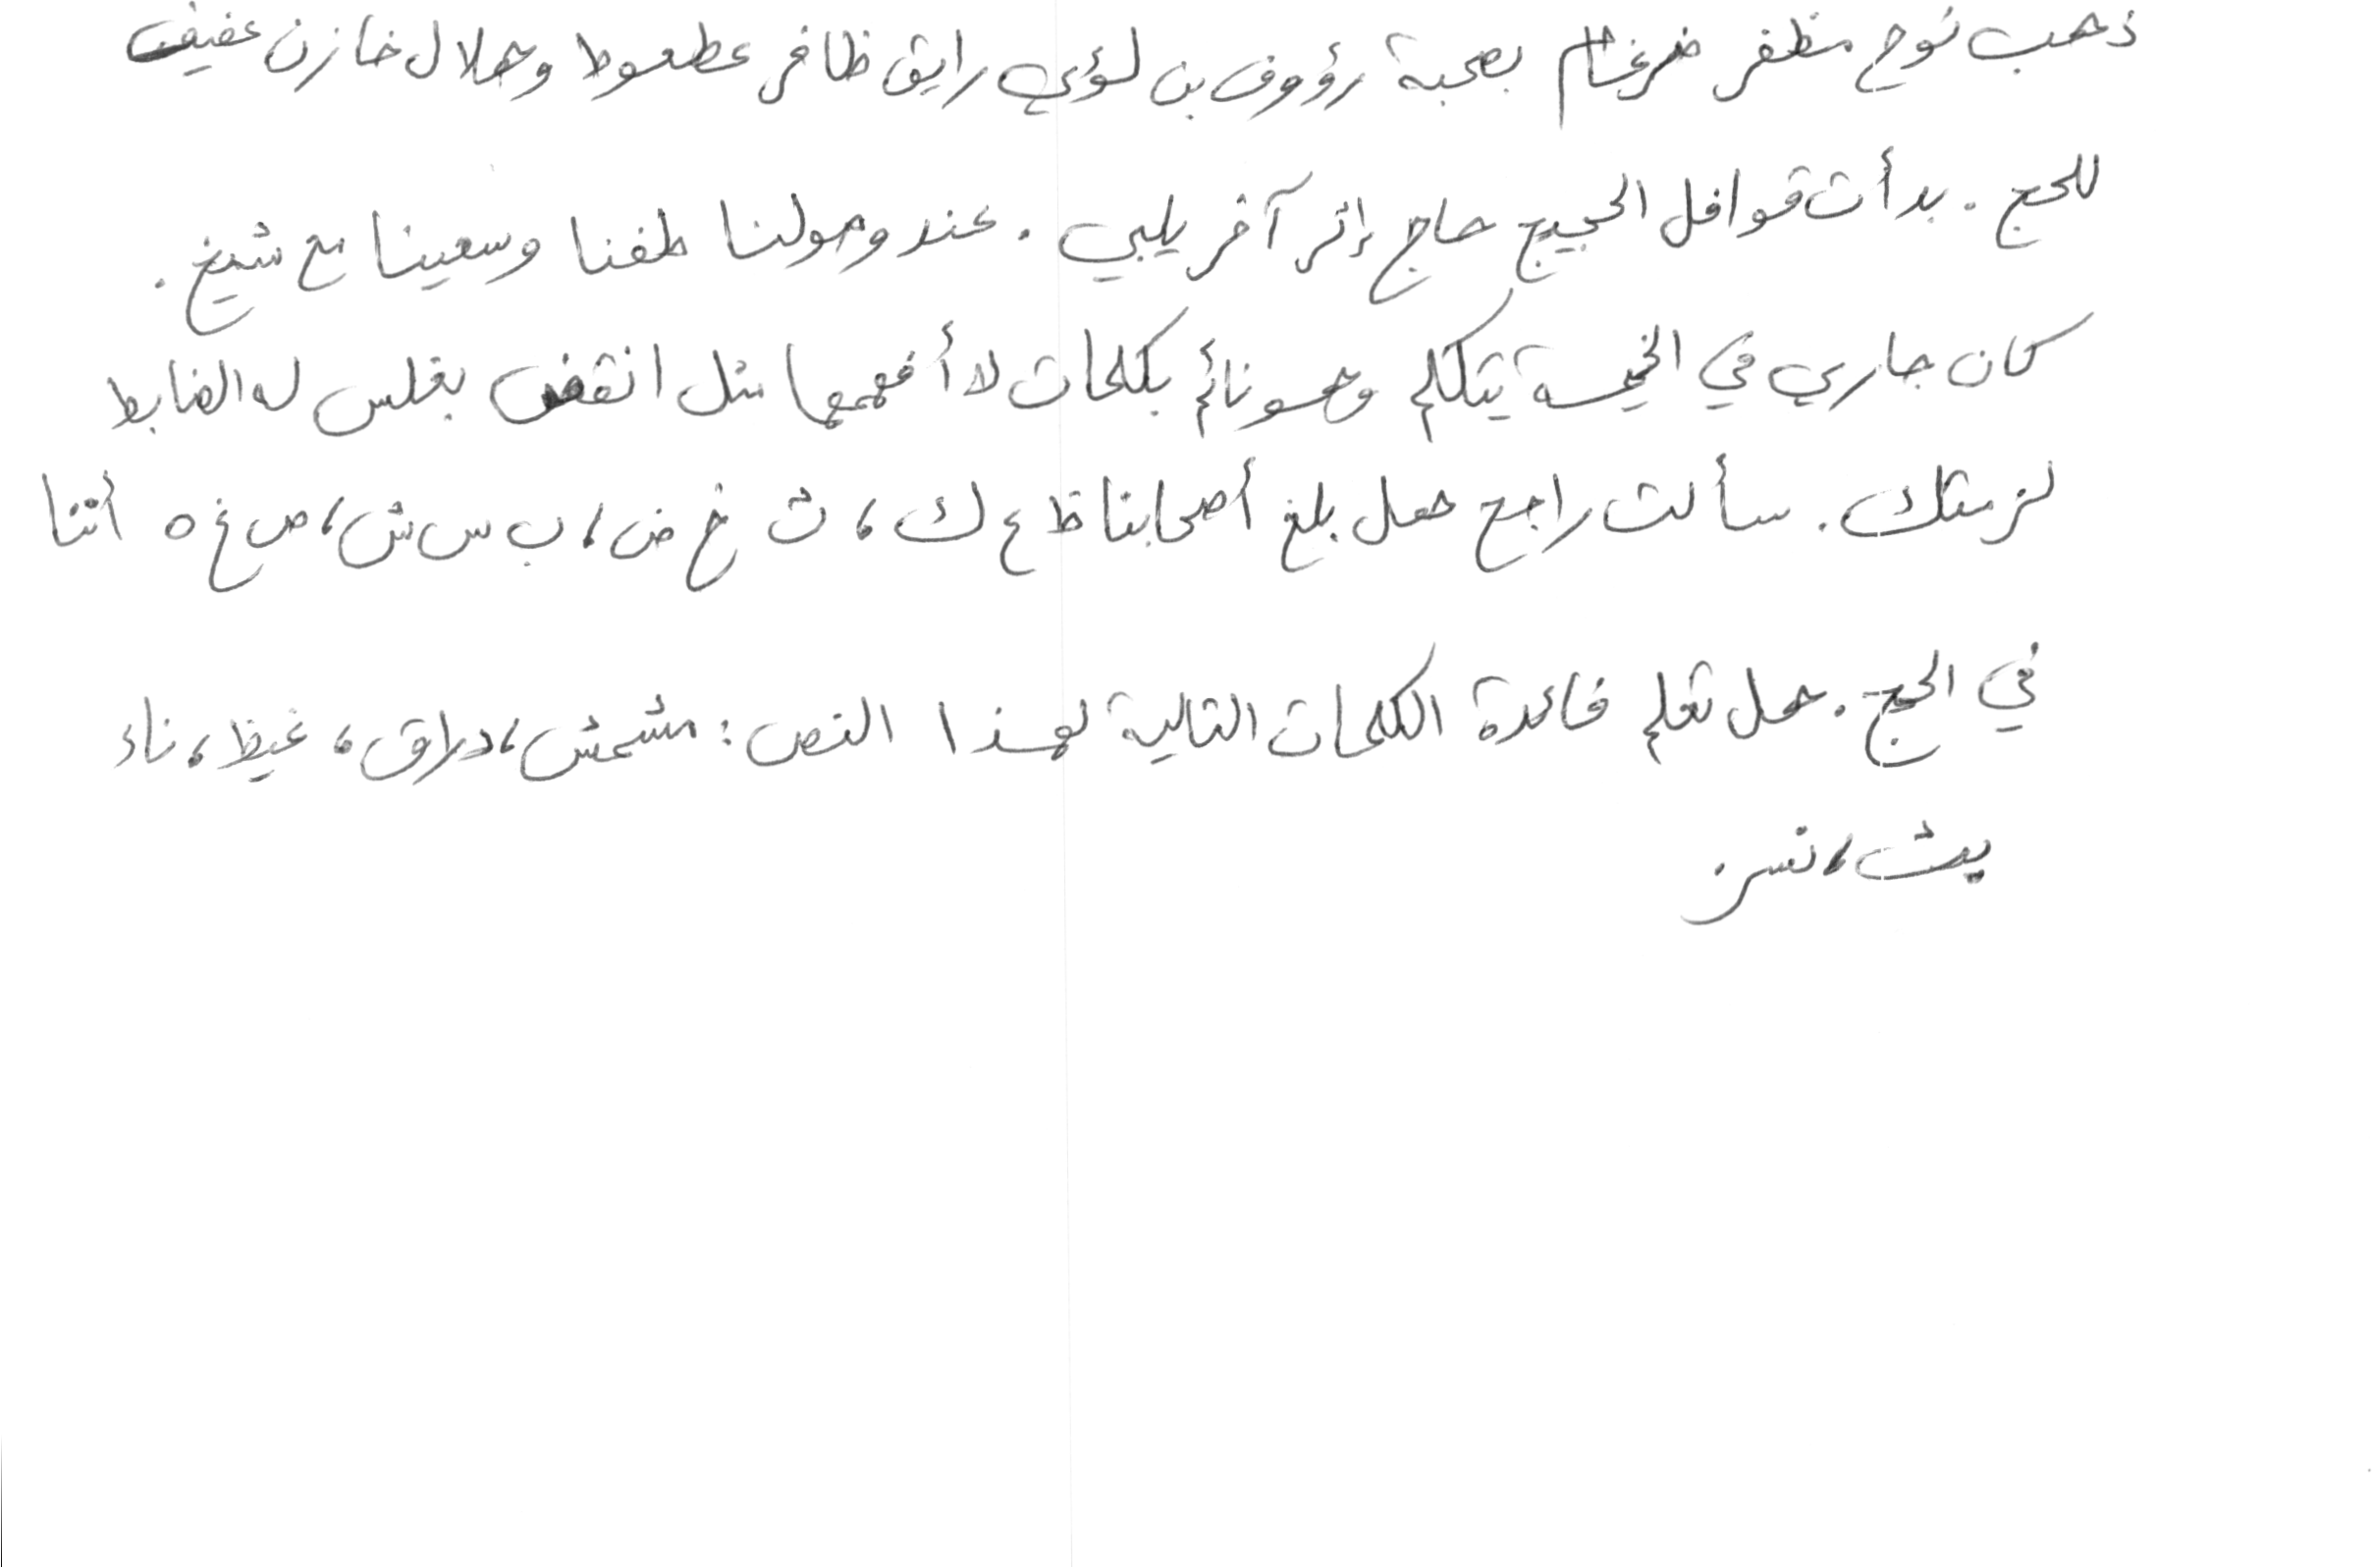 ذهب نوح مظفر ضرغام بصحبة رؤوف بن لؤي رايق ظافر عطعوط وهلال خازن عفيف
للحج . بدأت قوافل الحجيج حاج إثر آخر يلبي . عند وصولنا طفنا وسعينا مع شيخ .
كان جاري في الخيمة يتكلم وهو نائم بكلمات لا أفهمها مثل انقض بغلس له الضابط
لزمتك . سألت راجح هل بلغ أصحابنا ظ ع ك ، ث غ ض ، ب س ش ، ص غ ه أثنا
في الحج . هل تعلم فائدة الكلمات التالية لهذا النص : مشمش ، دراق ، غيظ ، ناء
يث ، نسر .